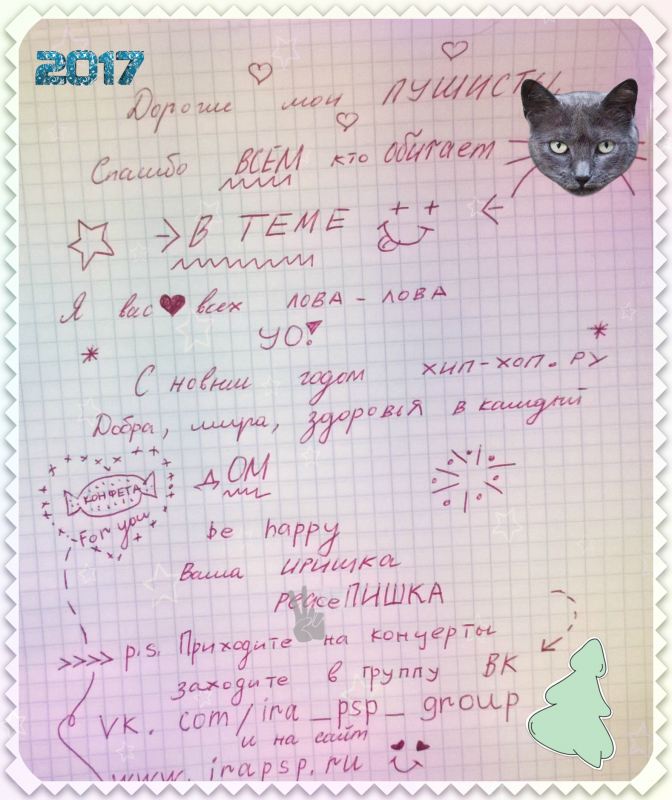 2017
Дорогие мои ПУШИСТИ
Спасибо ВСЕМ кто обитает
В ТЕМЕ
Я вас всех ЛОВА - ЛОВА
YO!
С новым годом ХИП-ХОП. РУ
Добра, мира, здоровья в каждый
ДОМ
КОНФЕТА
For you
be happy
Ваша ИРИШКА
peaceПИШКА
p.s. Приходите на концерты
заходите в группу ВК
VK. com/ira_psp_group
и на сайт
www. irapsp.ru